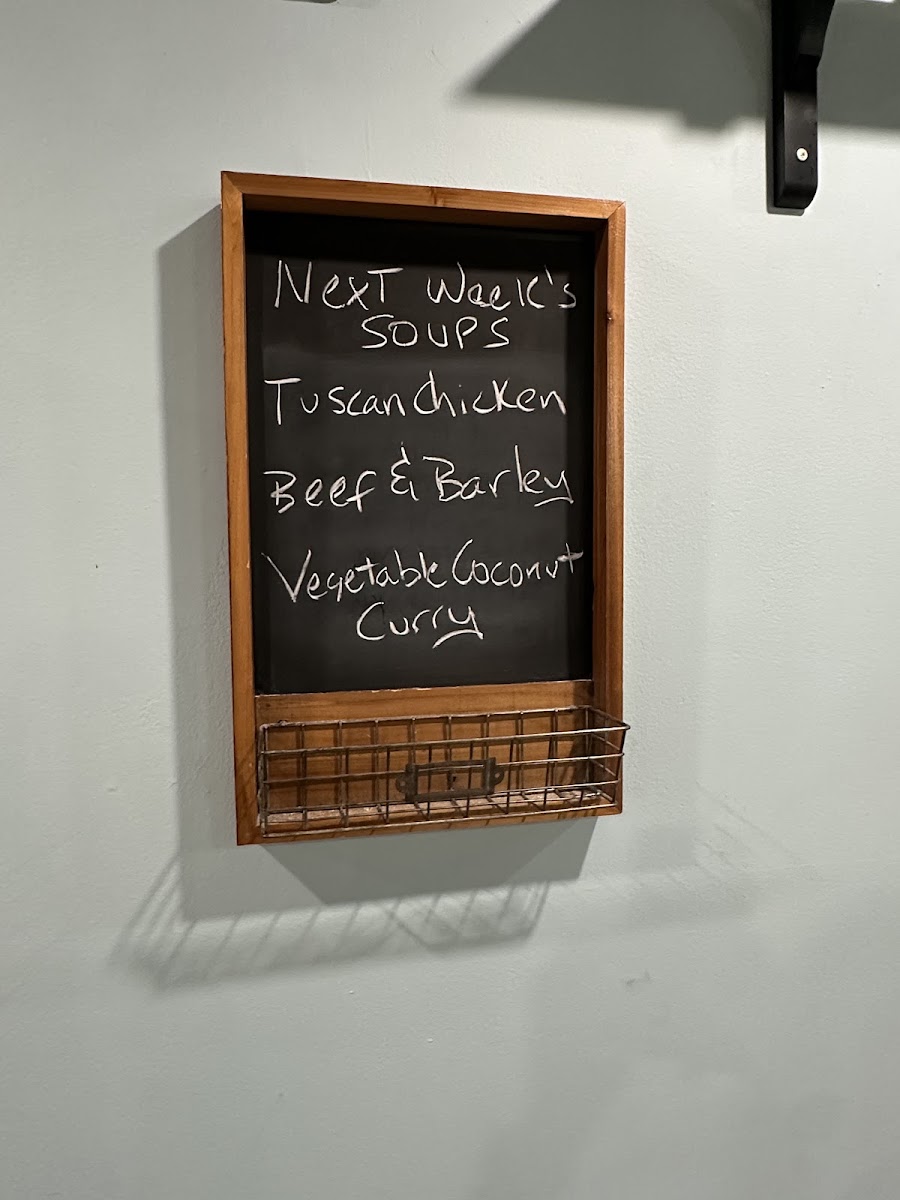 Next Week's
SOUPS
Tuscan Chicken
Beef & Barley
Vegetable Coconut
Curry